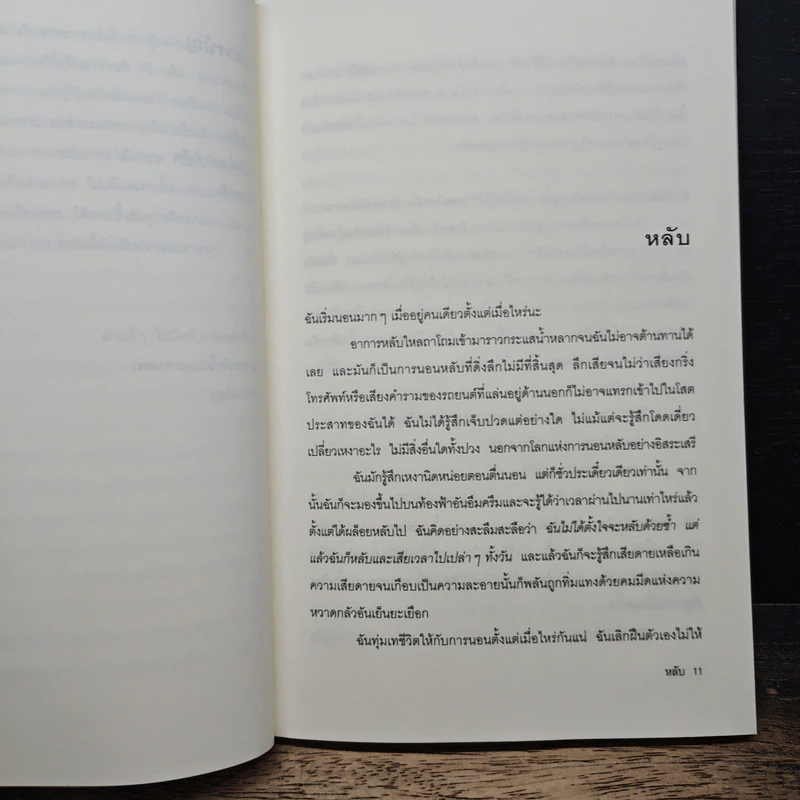 หลับ
ฉันเริ่มนอนมาก ๆ เมื่ออยู่คนเดียวตั้งแต่เมื่อไหร่นะ
อาการหลับใหลถาโถมเข้ามาราวกระแสน้ำหลากจนฉันไม่อาจต้านทานได้
เลย และมันก็เป็นการนอนหลับที่ดิ่งลึกไม่มีที่สิ้นสุด ลึกเสียจนไม่ว่าเสียงกริ่ง
โทรศัพท์หรือเสียงคำรามของรถยนต์ที่แล่นอยู่ด้านนอกก็ไม่อาจแทรกเข้าไปในโสต
ประสาทของฉันได้ ฉันไม่ได้รู้สึกเจ็บปวดแต่อย่างใด ไม่แม้แต่จะรู้สึกโดดเดี่ยว
เปลี่ยวเหงาอะไร ไม่มีสิ่งอื่นใดทั้งปวง นอกจากโลกแห่งการนอนหลับอย่างอิสระเสรี
ฉันมักรู้สึกเหงานิดหน่อยตอนตื่นนอน แต่ก็ชั่วประเดี๋ยวเดียวเท่านั้น จาก
นั้นฉันก็จะมองขึ้นไปบนท้องฟ้าอันอึมครึมและจะรู้ได้ว่าเวลาผ่านไปนานเท่าไหร่แล้ว
ตั้งแต่ได้ผล็อยหลับไป ฉันคิดอย่างสะลึมสะลือว่า ฉันไม่ได้ตั้งใจจะหลับด้วยซ้ำ แต่
แล้วฉันก็หลับและเสียเวลาไปเปล่า ๆ ทั้งวัน และแล้วฉันก็จะรู้สึกเสียดายเหลือเกิน
ความเสียดายจนเกือบเป็นความละอายนั้นก็พลันถูกทิ่มแทงด้วยคมมีดแห่งความ
หวาดกลัวอันเย็นยะเยือก
ฉันทุ่มเทชีวิตให้กับการนอนตั้งแต่เมื่อไหร่กันแน่ ฉันเลิกฝืนตัวเองไม่ให้
หลับ 11